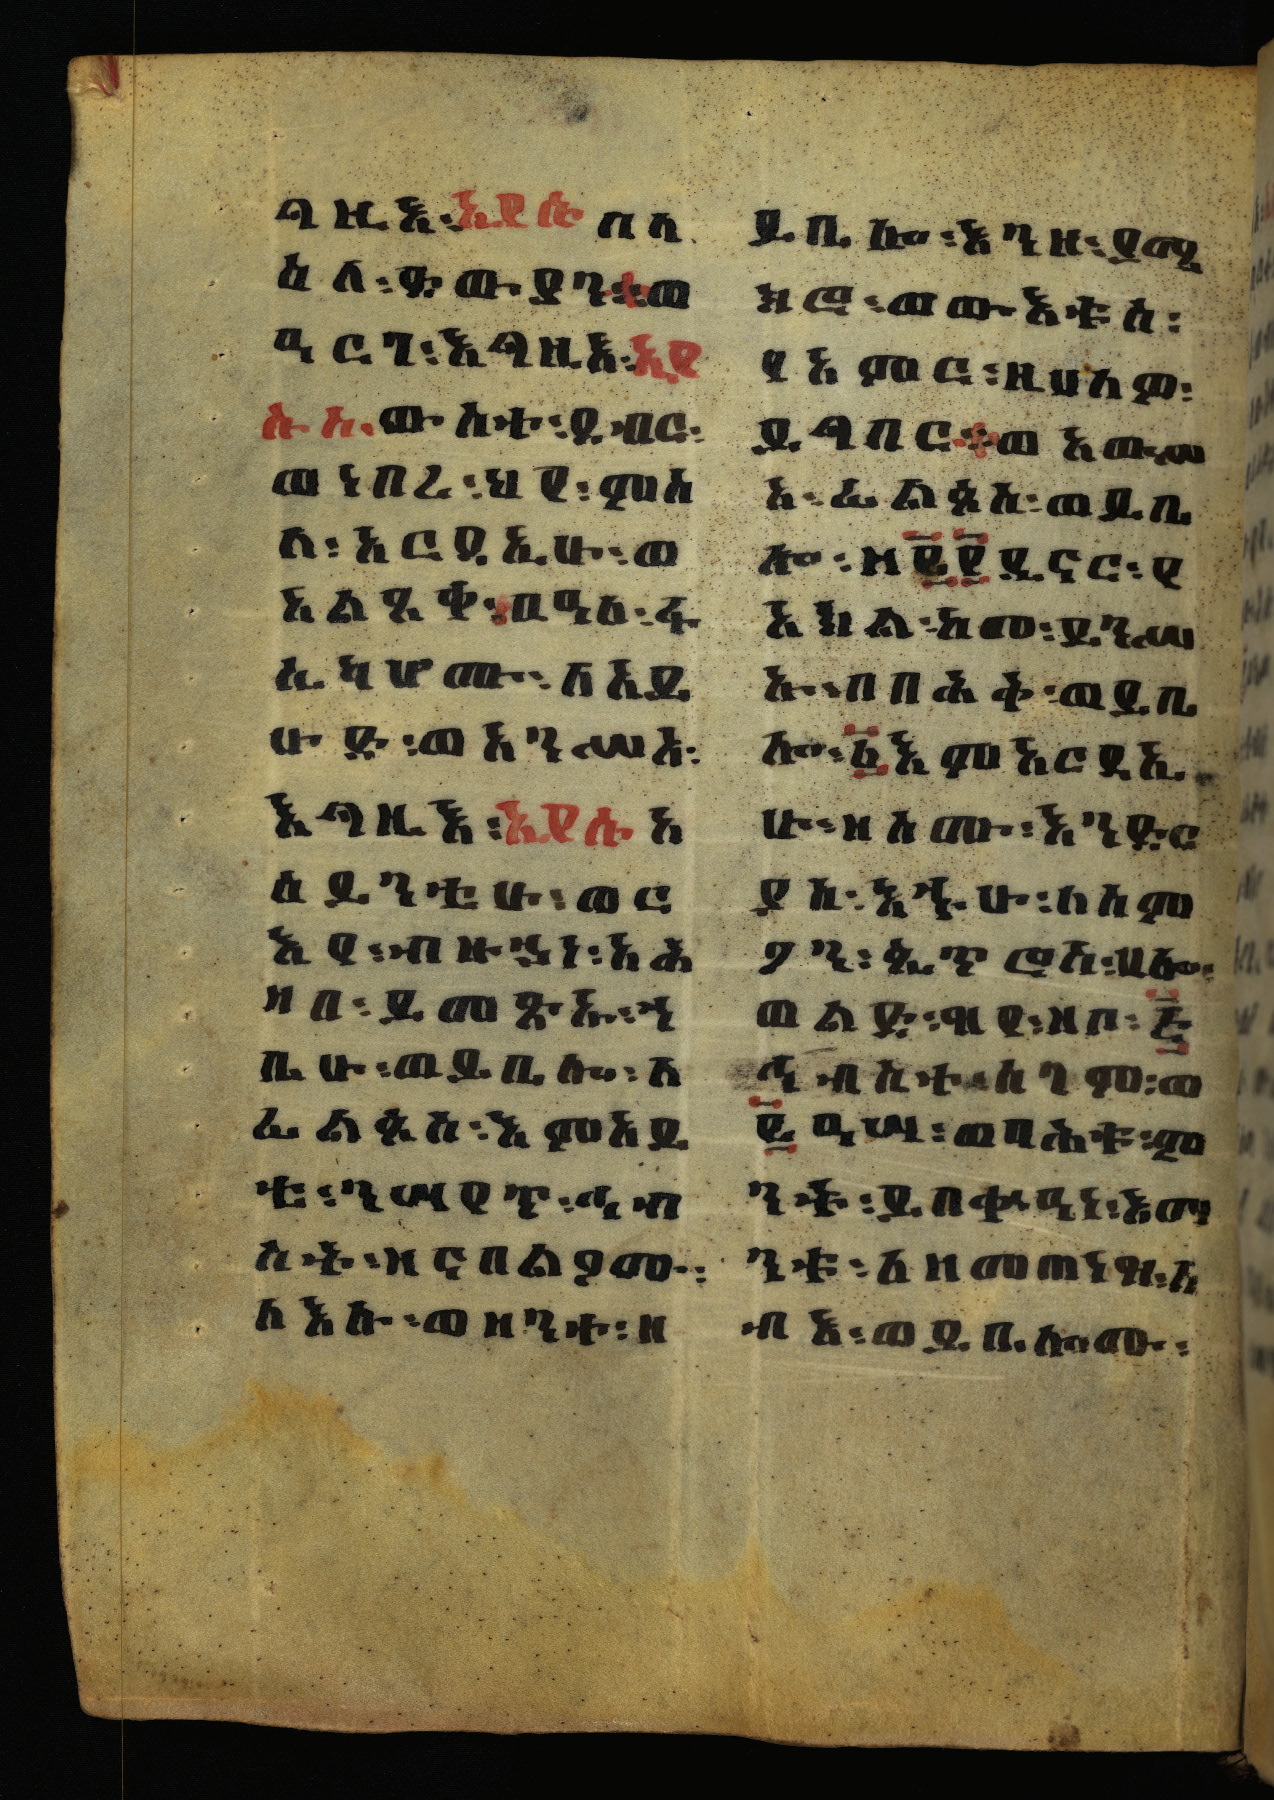 ግዚእ፡ኢየሱስ በእ
ስለ፡ዮውያን፡ወ
ዓርገ፡እግዚእ፡ኢየ
ሱስ፡ውስተ፡ደብር፡
ወነበረ፡ህየ፡ምስ
ለ፡አርዳኢሁ፡ወ
እልጺቅ፡በዓለ፡ፋ
ሲካሆሙ፡ለአይ
ሁድ፡ወአንሥአ፡
እግዚእ፡ኢየሱስ አ
ዕይንቲሁ፡ወር
እየ፡ብዙኃነ፡አሕ
ዛበ፡ይመጽኡ፡ኀ
ቤሁ፡ወይቤሎ፡ለ
ፊልጶስ፡እምአይ
ቴ፡ንሣየጥ፡ኅብ
ስተ፡ዘናበልዖሙ፡
ለእሉ፡ወዘንተ፡ዘ
ይቤሎ፡እንዘ፡ያሜ
ክሮ፡ወውእቱሰ፡
የአምር፡ዘሀለዎ፡
ይግበር፡ወአውሥ
አ፡ፊልጶስ፡ወይቤ
ሎ፡ዘ፪፻ዲናር፡የ
እክል፡ከመ፡ይንሣ
እ፡በበሕቅ፡ወይቤ
ሎ፡፩እምአርዳኢ
ሁ፡ዘስሙ፡እንድር
ያስ፡እኁሁ፡ለስም
ዖን፡ጴጥሮስ፡ሀሎ፡
ወልድ፡ዝየ፡ዘቦ፡፭
ኅብስተ፡ሰገም፡ወ
፪ዓሣ፡ወባሕቱ፡ም
ንት፡ይበቍዓነ፡እም
ንቱ፡ለዘመጠነዝ፡ሕ
ዝብእ፡ወይቤሎሙ፡